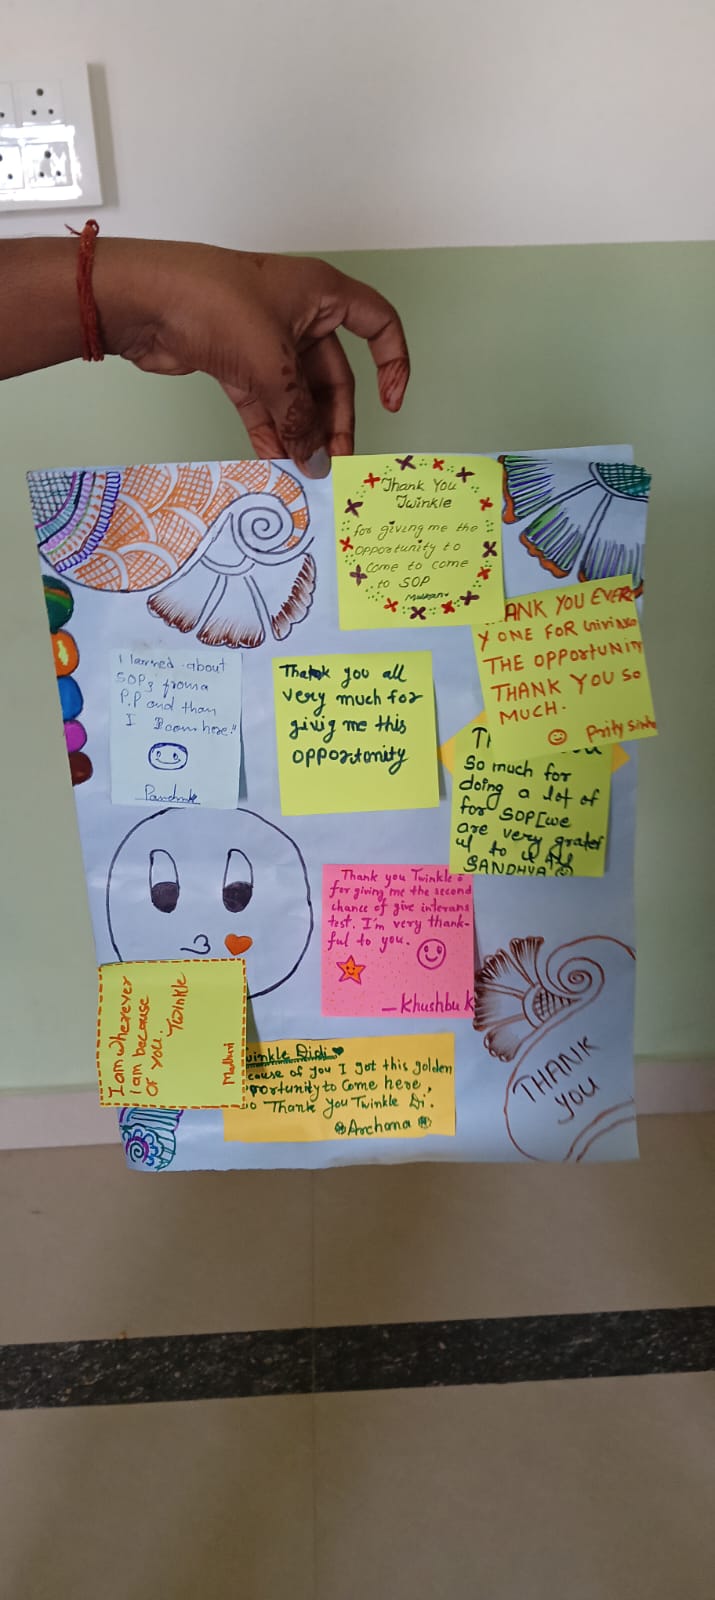 Thank You
Twinkle
for giving me the
opportunity to
come to come
to SOP
Muskan
ANK YOU EVERY
Y ONE FOR GIVING
THE OPPORTUNITY
THANK YOU SO
MUCH.
Prity Sinha
I larned about
SOP, from a
P.P and than
I Boom here!!
Thank you all
very much for
givig me this
opportunity
So much for
doing a lot of
for SOP[we
are very gratef
ul to u All
SANDHYA
Thank you Twinkle
for giving me the second
chance of give interans
test. I'm very thank-
ful to you.
-Khushbu K
I am wherever
I am because
of you. Twinkle
Madhuri
winkle Didi
cause of you I got this golden
portunity to come here,
o Thank you Twinkle Di.
Archana
THANK
YOU